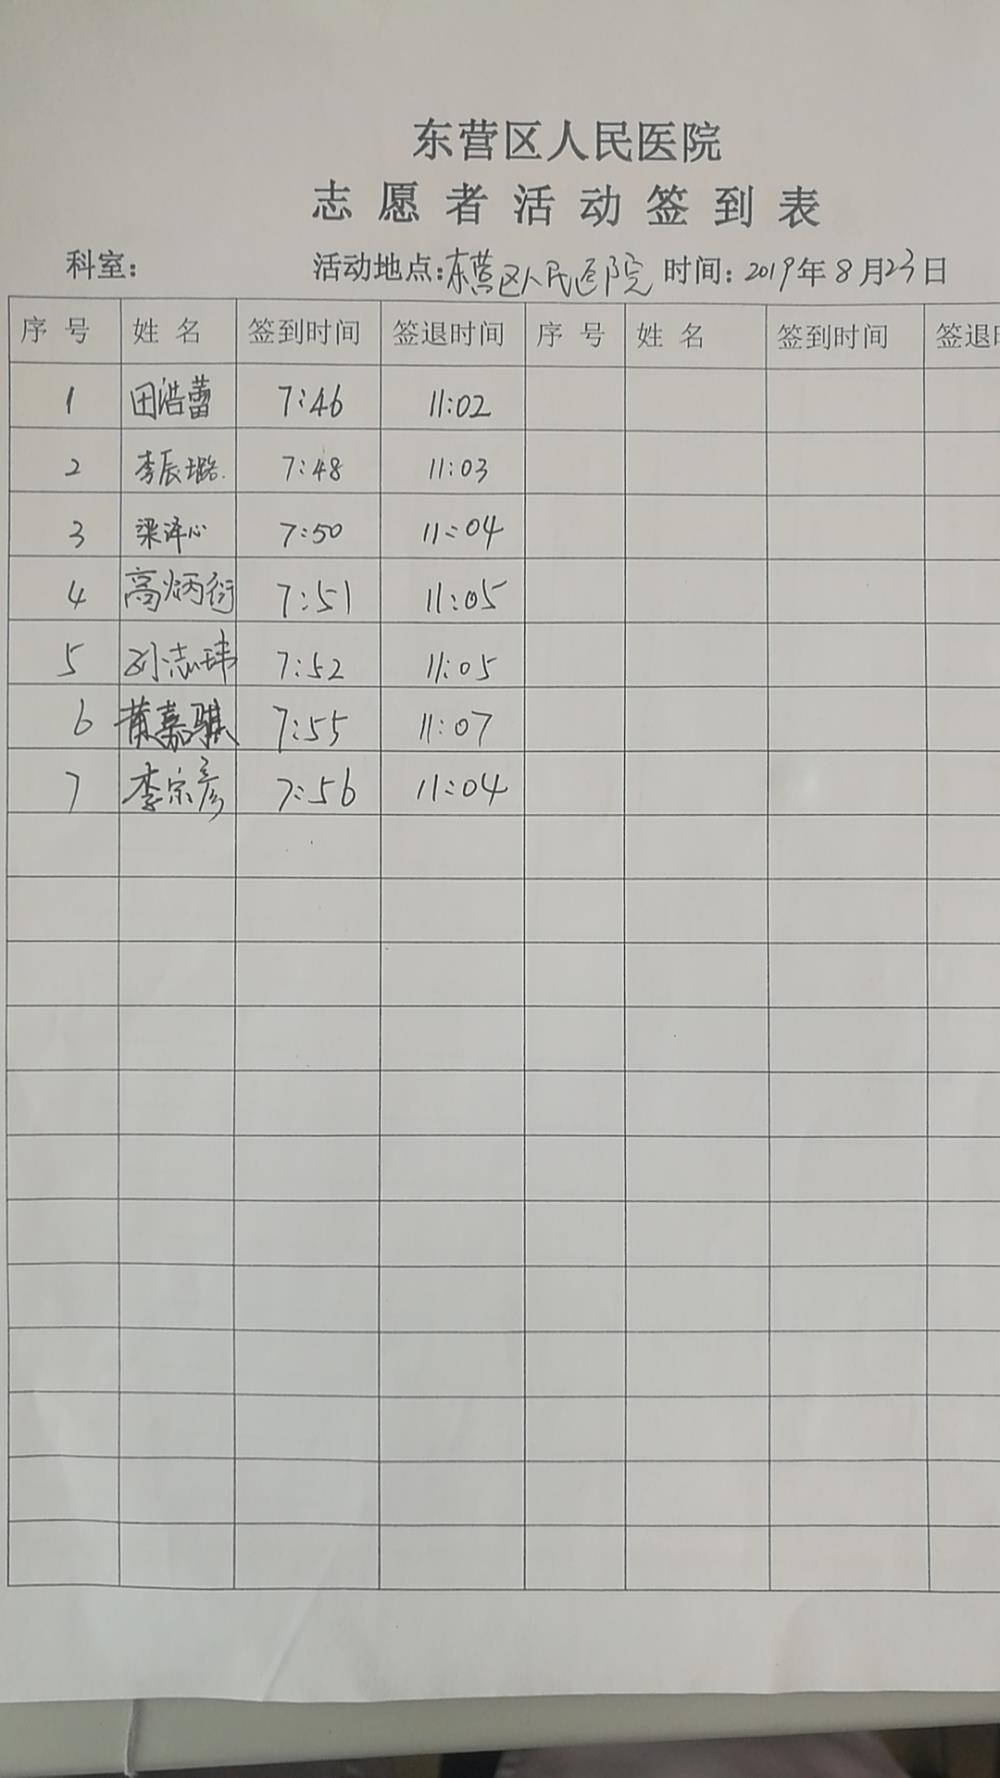 东营区人民医院
志愿者活动签到表
科室： 活动地点：东营区人民医院 时间：2019年8月23日
序号 姓名 签到时间 签退时间 序号 姓名 签到时间 签退
1 田浩蕾 7:46 11:02
2 李辰璐 7:48 11:03
3 梁泽心 7:50 11:04
4 高炳衍 7:51 11:05
5 刘志玮 7:52 11:05
6 黄嘉骐 7:55 11:07
7 李宗彦 7:56 11:04